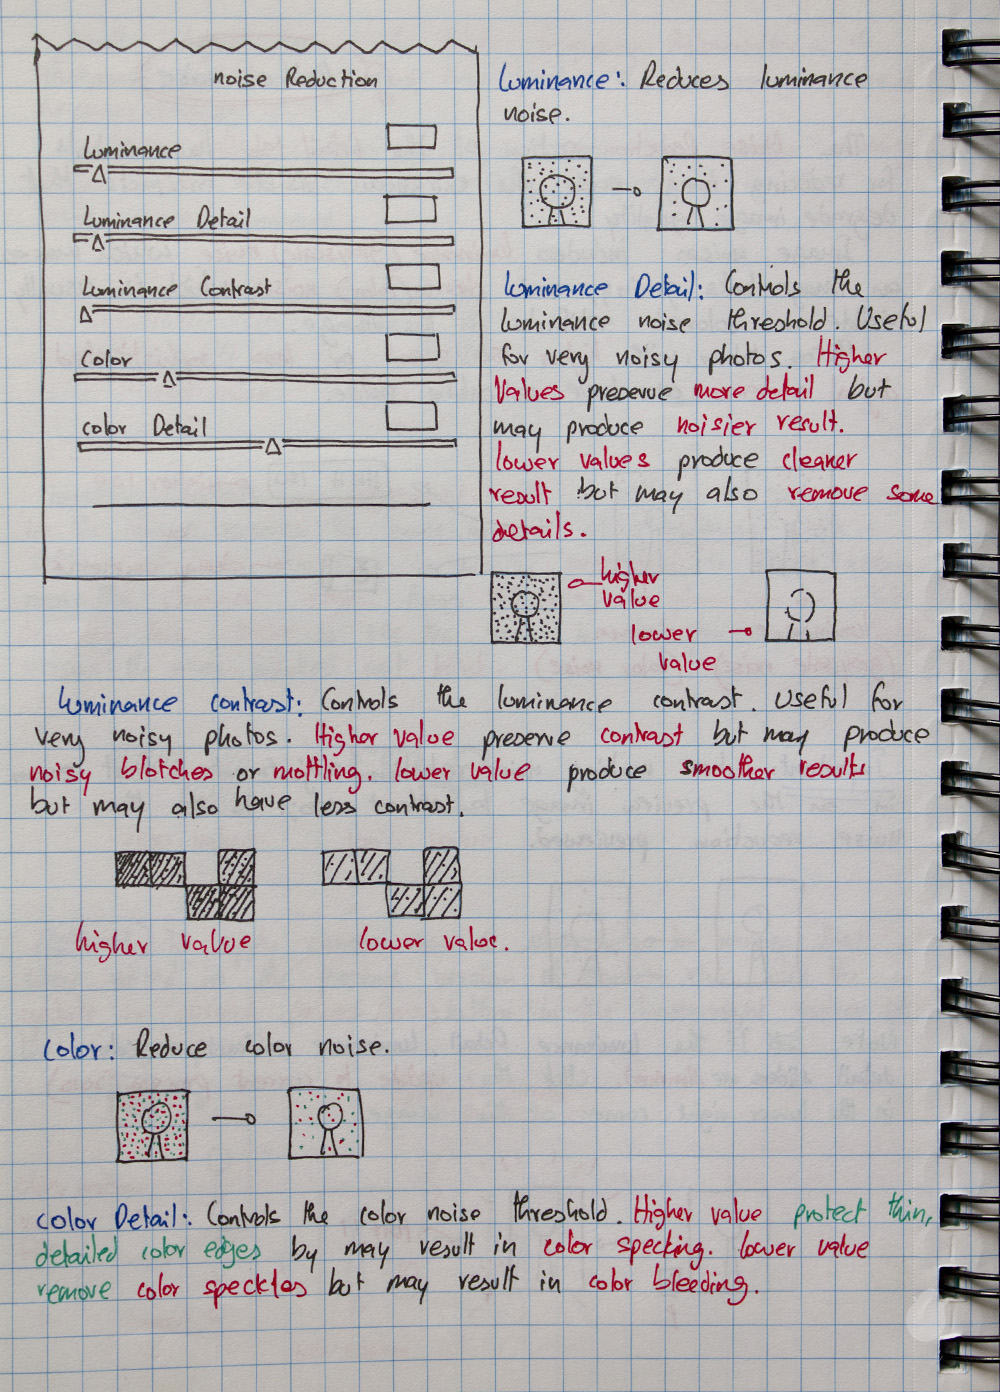 noise Reduction
Luminance
Luminance Detail
Luminance Contrast
Color
color Detail
Luminance: Reduces luminance
noise.
Luminance Detail: Controls the
luminance noise threshold. Useful
for very noisy photos. Higher
Values preserve more detail but
may produce noisier result.
lower values produce cleaner
result but may also remove some
details.
higher
value
lower
value
Luminance contrast: Controls the luminance contrast. Useful for
very noisy photos. Higher value preserve contrast but may produce
noisy blotches or mottling. lower value produce smoother results
but may also have less contrast.
higher value
lower value.
Color: Reduce color noise.
color Detail: Controls the color noise threshold. Higher value protect thin,
detailed color edges by may result in color specking. lower value
remove color speckles but may result in color bleeding.